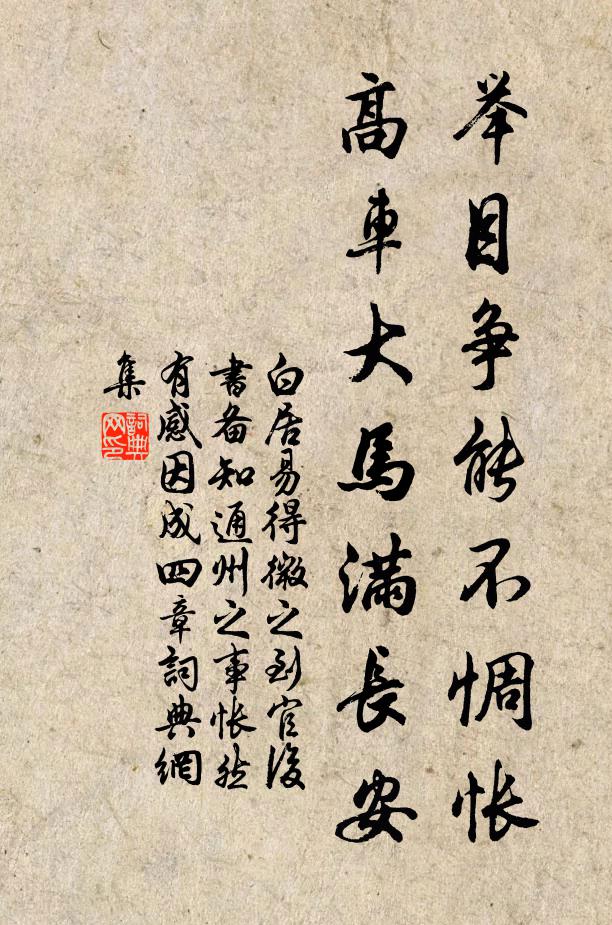 举目争能不惆怅
高車大馬满長安
白居易得微之到官後
書备知通州之事怅然
有感因成四章詞典網
集
詞典
网印